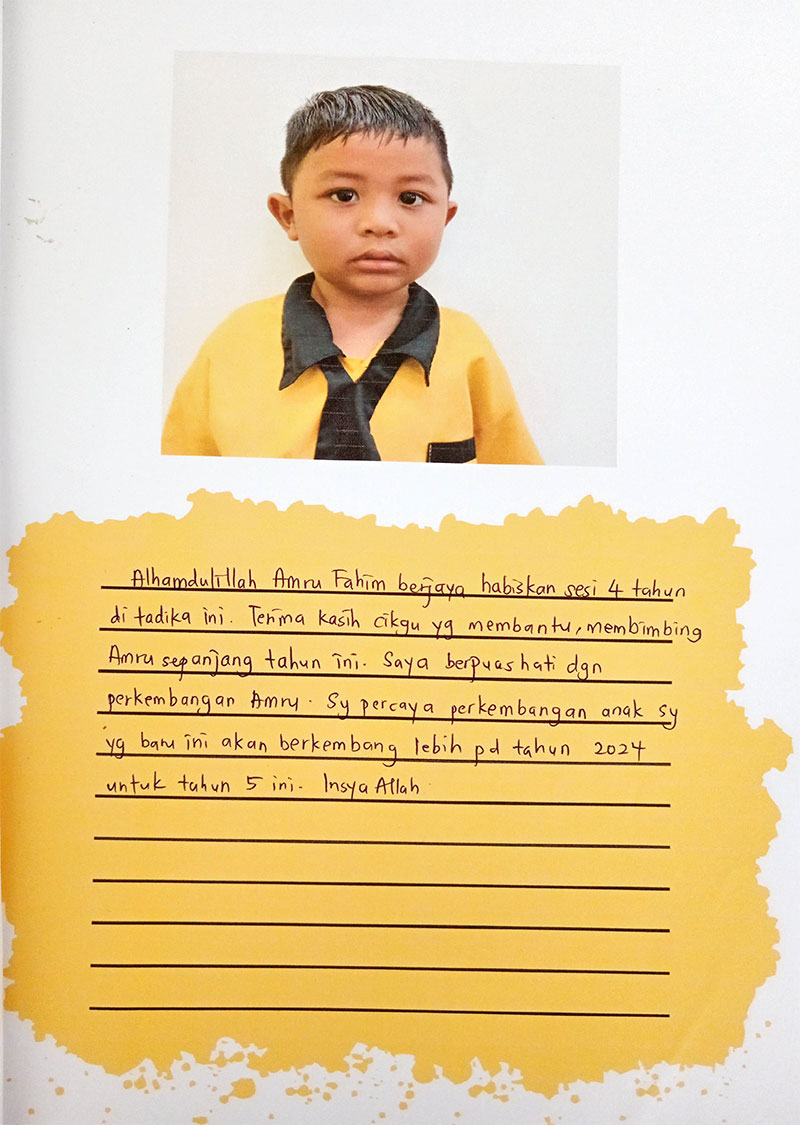 Alhamdulillah Amru Fahim berjaya habiskan sesi 4 tahun
di tadika ini. Terima kasih cikgu yg membantu, membimbing
Amru sepanjang tahun ini. Saya berpuas hati dgn
perkembangan Amru. Sy percaya perkembangan anak sy
yg baru ini akan berkembang lebih pd tahun 2024
untuk tahun 5 ini. Insya Allah